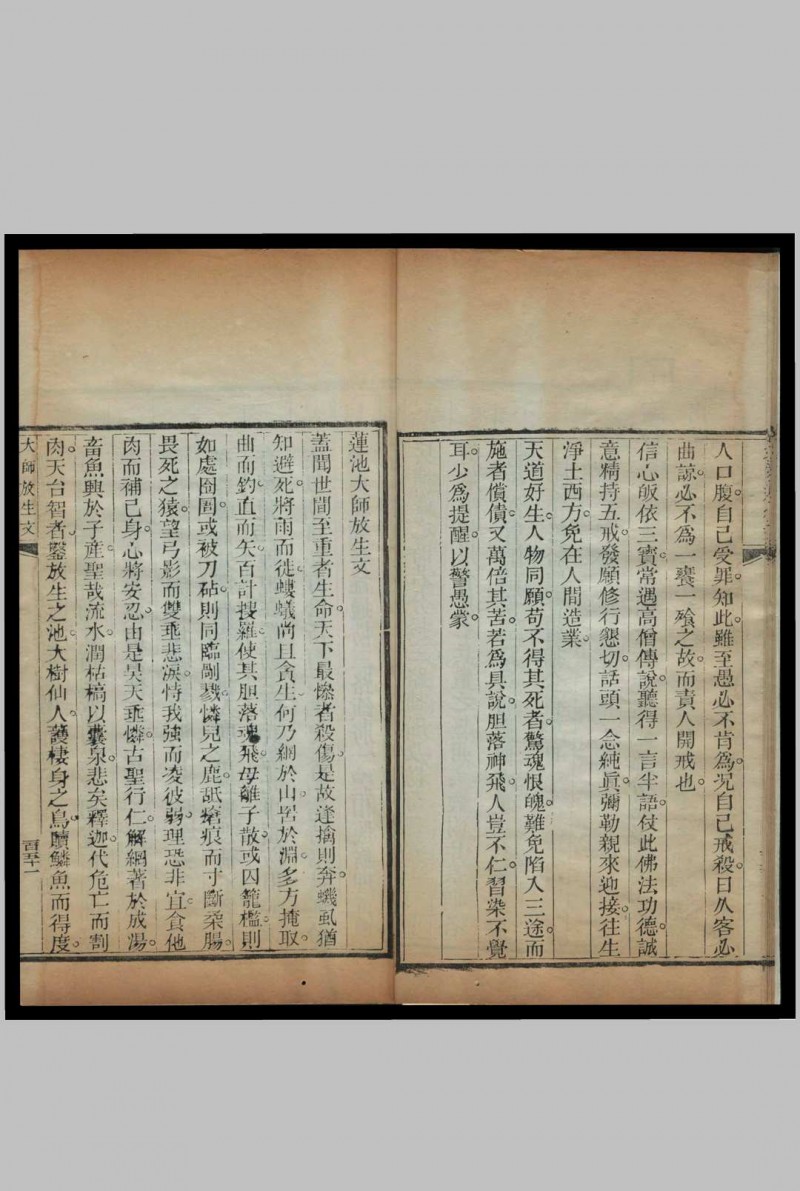 人口腹自己受罪。知此。雖至愚必不肯爲。况自己戒殺。曰从客必
曲諒。必不爲一饔一飱之故。而責人開戒也。
信心皈依三寶。常遇高僧傳說。聽得一言半語。仗此佛法功德。誠
意精持五戒。發願修行懇切。話頭一念純眞。彌勒親來迎接。往生
淨土西方。免在人間造業。
天道好生。人物同願。苟不得其死者。驚魂恨魄。難免陷入三途。而
施者償債。又萬倍其苦。若爲具說。胆落神飛。人豈不仁。習染不覺
耳。少爲提醒。以警愚蒙。
蓮池大師放生文
蓋聞世間至重者生命。天下最慘者殺傷。是故逢擒則奔。蟣虱猶
知避死。將雨而徙。螻蟻尚且貪生。何乃網於山。罟於淵。多方掩取。
曲而釣。直而矢。百計搜羅。使其胆落魂飛。母離子散。或囚籠檻。則
如處囹圄。或被刀砧。則同臨剮戮。憐兒之鹿。舐瘡痕而寸斷柔腸。
畏死之猿。望弓影而雙垂悲淚。恃我強而凌彼弱。理恐非宜。食他
肉而補己身。心將安忍。由是昊天垂憐。古聖行仁。解網著於成湯。
畜魚興於子產。聖哉流水。潤枯槁以囊泉。悲矣釋迦。代危亡而割
肉。天台智者。鑿放生之池。大樹仙人。護棲身之鳥。贖鱗魚而得度。
大師放生文
百五十一